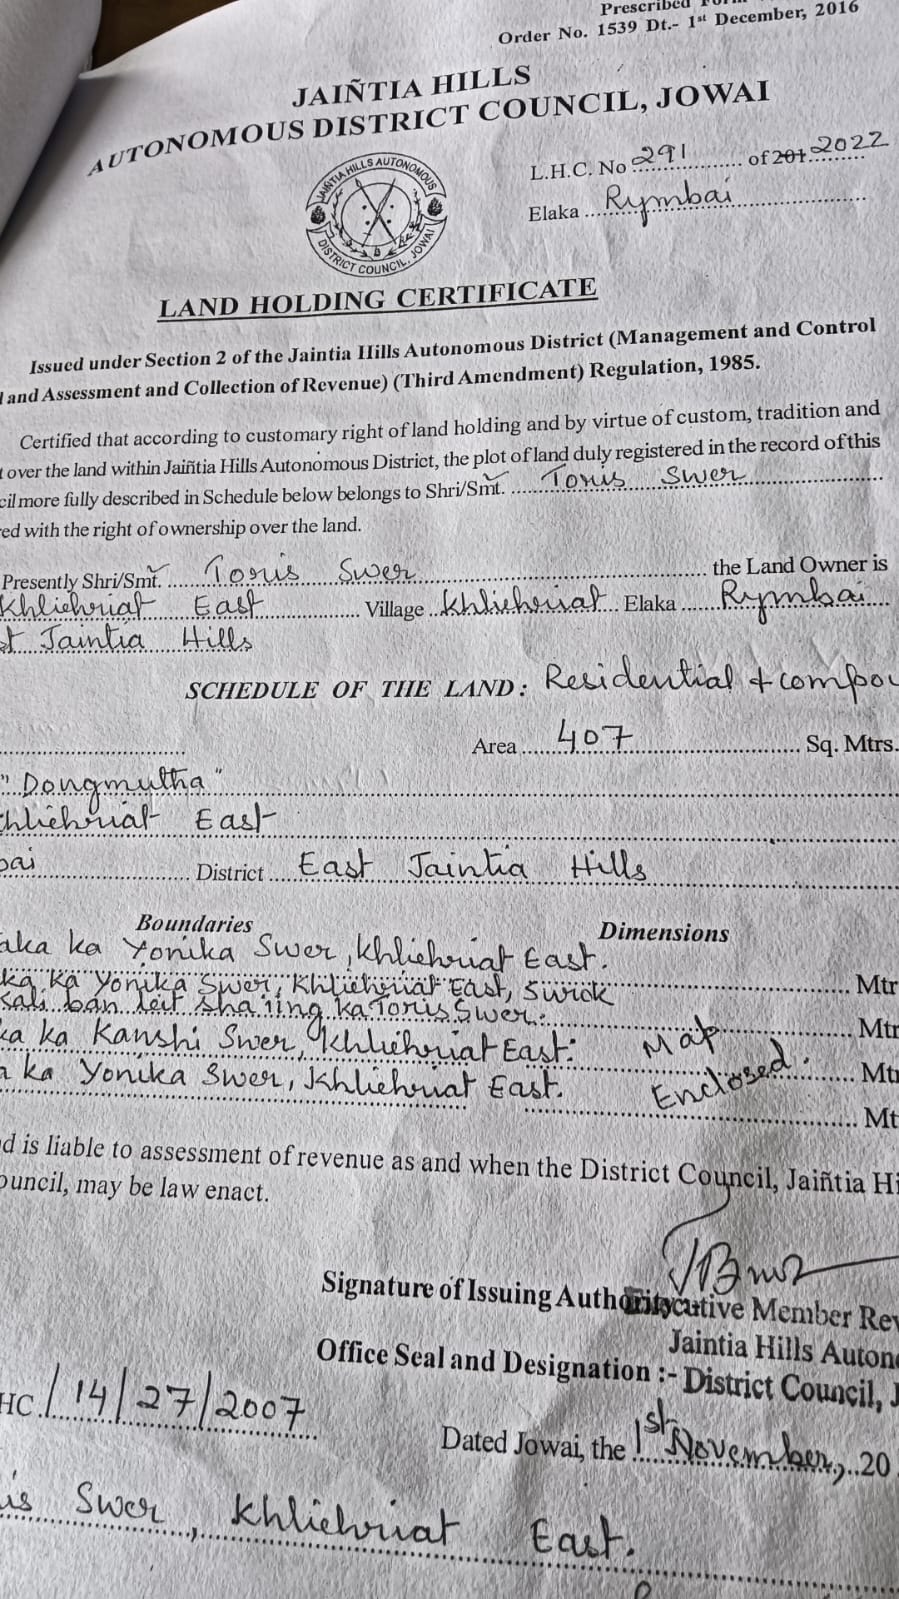 Prescribed Form
Order No. 1539 Dt.- 1st December, 2016
JAIÑTIA HILLS
AUTONOMOUS DISTRICT COUNCIL, JOWAI
JAIÑTIA HILLS AUTONOMOUS
DISTRICT COUNCIL, JOWAI
L.H.C. No 291 of 201 2022
Elaka Rymbai
LAND HOLDING CERTIFICATE
Issued under Section 2 of the Jaintia Hills Autonomous District (Management and Control
and Assessment and Collection of Revenue) (Third Amendment) Regulation, 1985.
Certified that according to customary right of land holding and by virtue of custom, tradition and
over the land within Jaiñtia Hills Autonomous District, the plot of land duly registered in the record of this
cil more fully described in Schedule below belongs to Shri/Smt. Toris Swer
ed with the right of ownership over the land.
Presently Shri/Smt. Toris Swer the Land Owner is
Khliehriat East Village Khliehriat Elaka Rymbai
st Jaintia Hills
SCHEDULE OF THE LAND: Residential + compou
Area 407 Sq. Mtrs.
"Dongmutha"
hliehriat East
bai District East Jaintia Hills
Boundaries Dimensions
aka ka Yonika Swer, Khliehriat East.
ka ka Yonika Swer, Khliehriat East, Surok Mtr
ban leit sha iing ka Toris Swer. Mtr
ka ka Kanshi Swer, Khliehriat East. Map Mtr
a ka Yonika Swer, Khliehriat East. Enclosed. Mt
d is liable to assessment of revenue as and when the District Council, Jaiñtia Hi
ouncil, may be law enact.
Signature of Issuing Authority cutive Member Rev
Jaintia Hills Autono
Office Seal and Designation :- District Council, J
HC/14/27/2007
Dated Jowai, the 1st November, 20
is Swer, Khliehriat East.